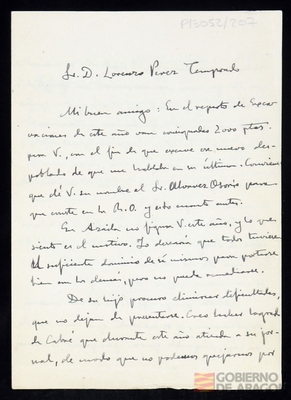 P13052/207
Sr. D. Lorenzo Pérez Temprado
Mi buen amigo: En el reparto de Exca-
vaciones de este año van consignadas 2000 ptas.
para V., con el fin de que excave ese nuevo des-
poblado de que me hablaba en su última. Conviene
que dé V. su nombre al Sr. Alvarez Osorio para
que conste en la R.O. y esto cuanto antes.
En Azaila no figura V. este año, y lo que
siento es el motivo. Yo desearía que todos tuvieran
el suficiente dominio de sí mismos para portarse
bien con los demás, pero no puedo remediarlo.
De su hijo procuro eliminar dificultades,
que no dejan de presentarse. Creo haber logrado
de Cabré que durante este año atienda a su jor-
nal, de modo que no podemos quejarnos por
GOBIERNO
DE ARAGON